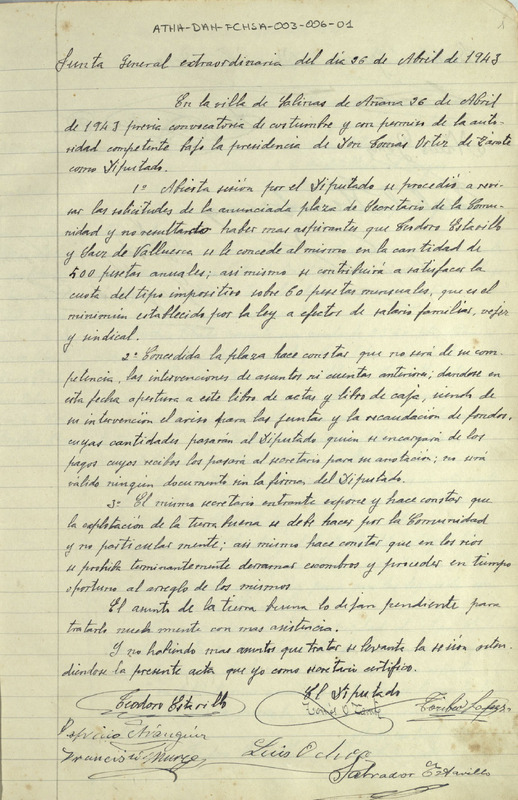 ATHA-DAH-FCHSA-003-006-01
1
Junta General extraordinaria del dia 26 de Abril de 1943
En la villa de Salinas de Añana 26 de Abril
de 1943 previa convocatoria de costumbre y con permiso de la auto-
ridad competente bajo la presidencia de Don Tomás Ortiz de Zárate
como Diputado.
1º Abierta sesión por el Diputado se procedió a revi-
sar las solicitudes de la anunciada plaza de Secretario de la Comu-
nidad y no resultando haber mas aspirantes que Teodoro Estavillo
y Saez de Valluerca se le concede al mismo en la cantidad de
500 pesetas anuales; asi mismo se contribuirá a satisfacer la
cuota del tipo impositivo sobre 60 pesetas mensuales, que es el
minimún establecido por la ley a efectos de salario familiar, vejez
y sindical.
2º Concedida la plaza hace constar que no será de su com-
petencia, las intervenciones de asuntos ni cuentas anteriores; dandose en
esta fecha apertura a este libro de actas y libro de caja, siendo de
su intervención el aviso para las juntas y la recaudación de fondos,
cuyas cantidades pasarán al Diputado quien se encargará de los
pagos cuyos recibos los pasará al secretario para su anotación; no será
válido ningun documento sin la firma del Diputado.
3º El mismo secretario entrante expone y hace constar que
la explotación de la tierra buena se debe hacer por la Comunidad
y no particularmente; asi mismo hace constar que en los rios
se prohiba terminantemente derramar escombros y proceder en tiempo
oportuno al arreglo de los mismos
El asunto de la tierra buena lo dejan pendiente para
tratarlo nuevamente con mas asistencia.
Y no habiendo mas asuntos que tratar se levanta la sesión exten-
diendose la presente acta que yo como secretario certifico.
El Diputado
Teodoro Estavillo
Tomás O. Zárate
Toribio Lopez
Francisco
Luis Ochoa
Salvador Estavillo